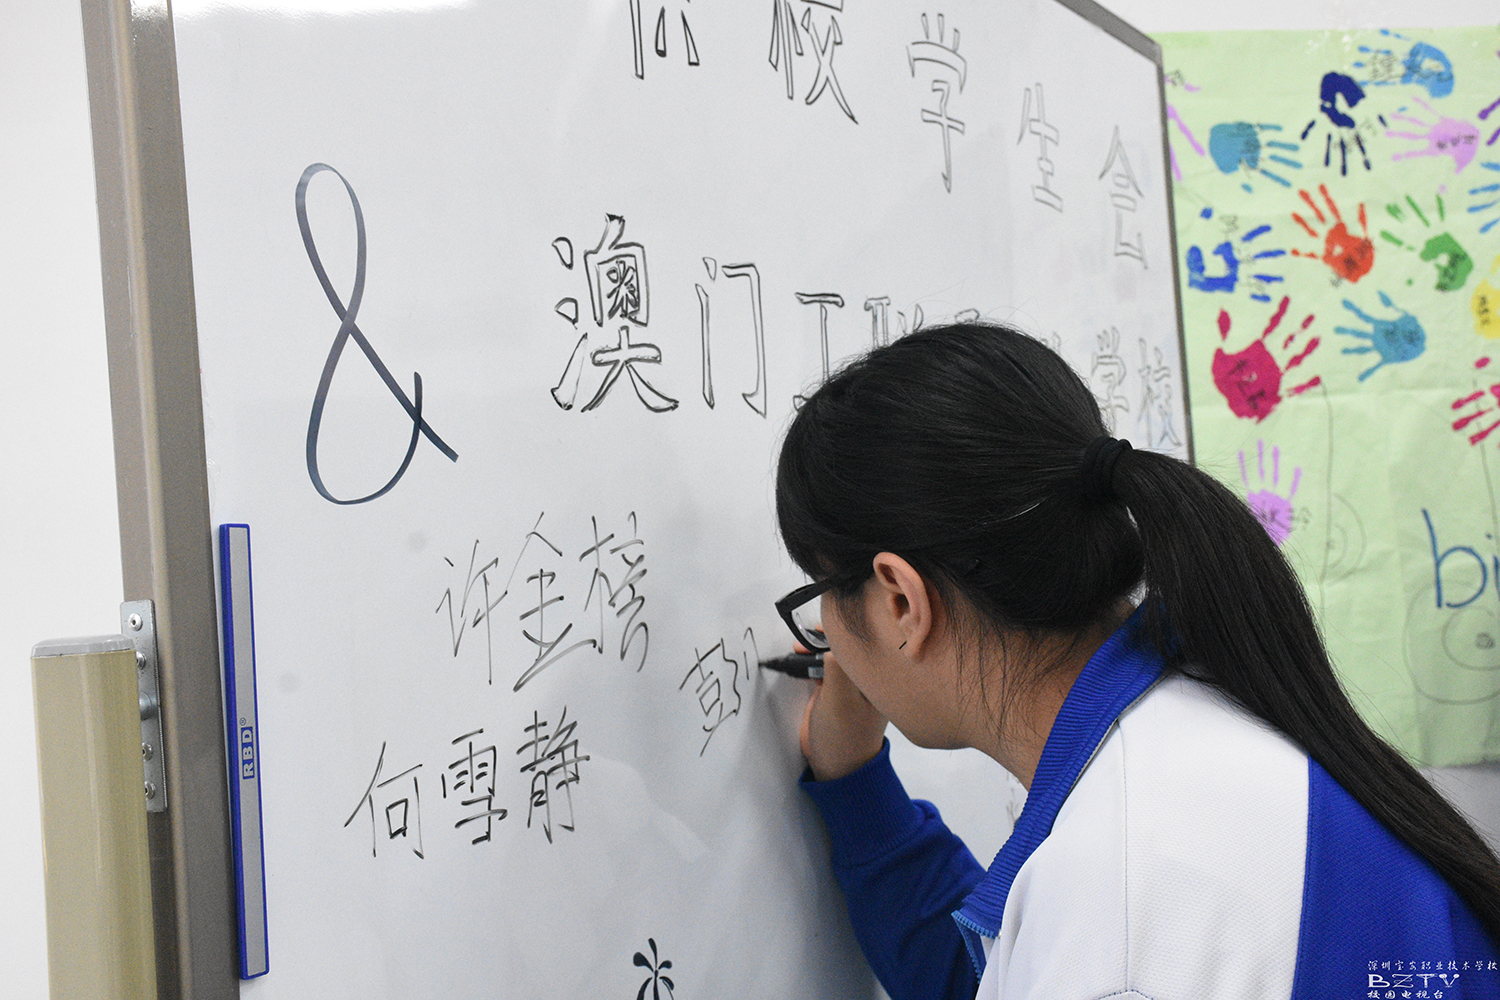 校学生会
&
澳门工联 学校
许金榜
彭
何雪静
RBD®
bi
深圳宝安职业技术学校
BZTV
校园电视台